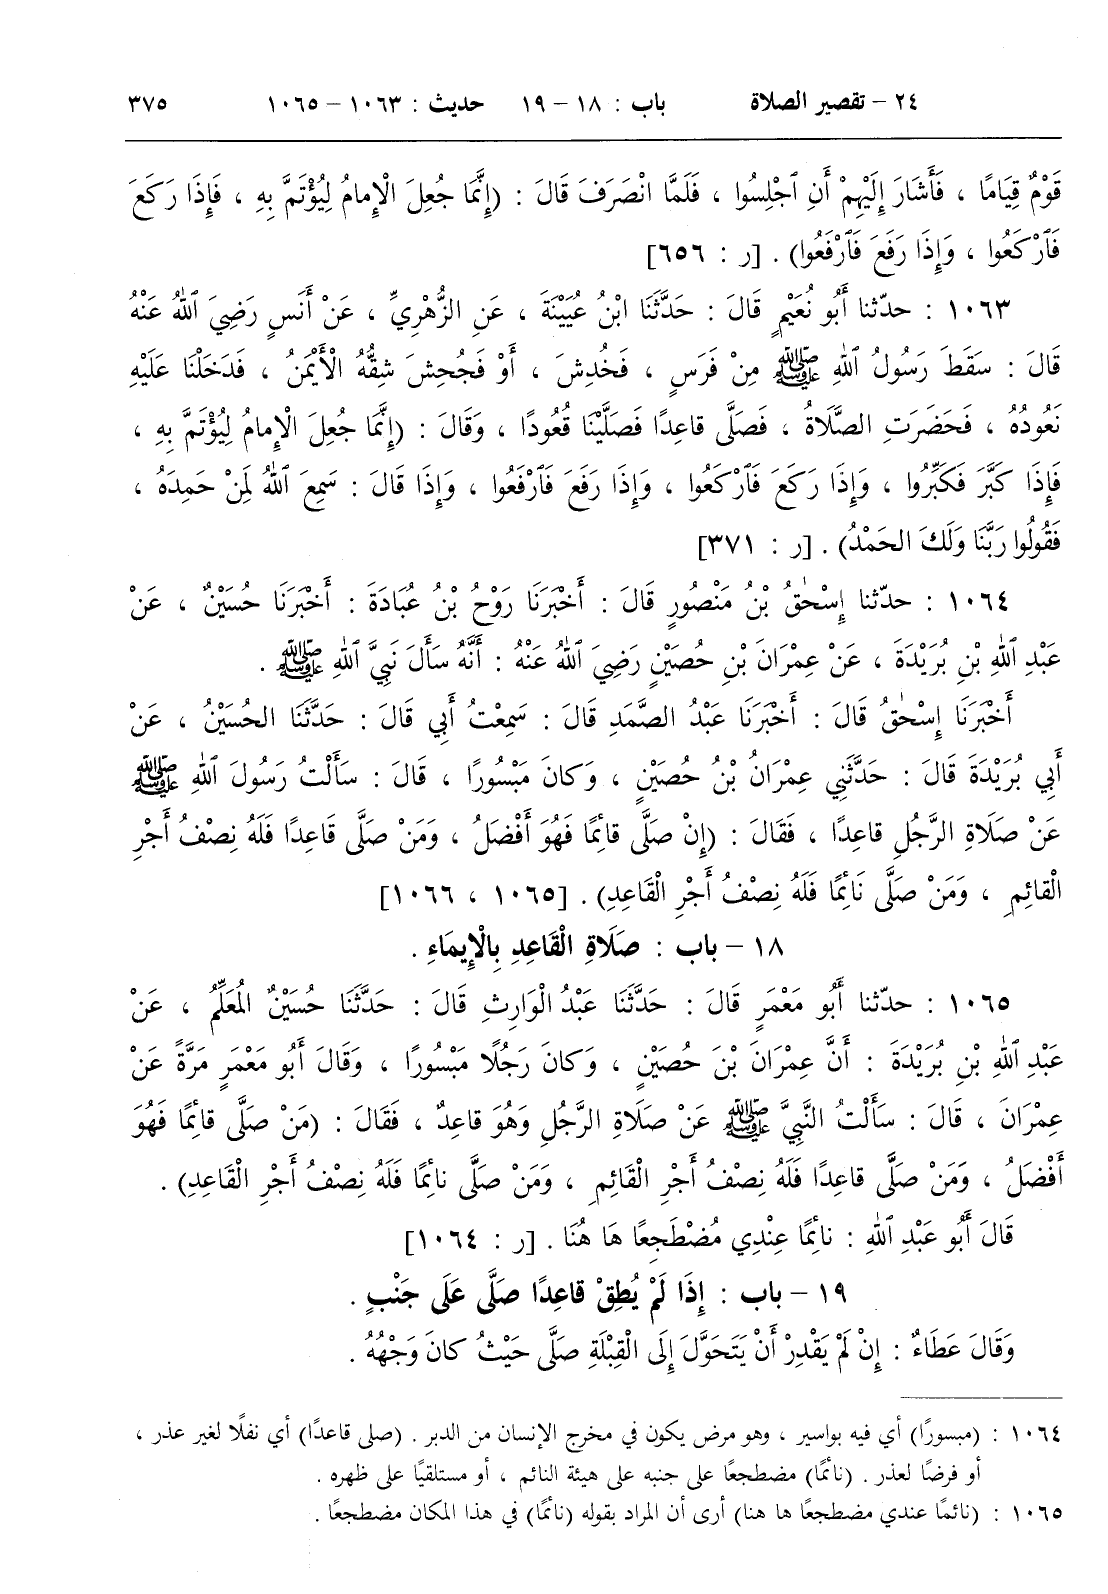 ٢٤ – تقصير الصلاة باب : ١٨ – ١٩ حديث : ١٠٦٣ – ١٠٦٥ ٣٧٥
قَوْمٌ قِيَامًا ، فَأَشَارَ إِلَيْهِمْ أَنِ ٱجْلِسُوا ، فَلَمَّا انْصَرَفَ قَالَ : (إِنَّمَا جُعِلَ الْإِمامُ لِيُؤْتَمَّ بِهِ ، فَإِذَا رَكَعَ
فَٱرْكَعُوا ، وَإِذَا رَفَعَ فَٱرْفَعُوا) . [ر : ٦٥٦]
١٠٦٣ : حدّثنا أَبُو نُعَيْمٍ قَالَ : حَدَّثَنَا ابْنُ عُيَيْنَةَ ، عَنِ الزُّهْرِيِّ ، عَنْ أَنَسٍ رَضِيَ ٱللهُ عَنْهُ
قَالَ : سَقَطَ رَسُولُ ٱللهِ ﷺ مِنْ فَرَسٍ ، فَخُدِشَ ، أَوْ فَجُحِشَ شِقُّهُ الْأَيْمَنُ ، فَدَخَلْنَا عَلَيْهِ
نَعُودُهُ ، فَحَضَرَتِ الصَّلَاةُ ، فَصَلَّى قاعِدًا فَصَلَّيْنَا قُعُودًا ، وَقَالَ : (إِنَّمَا جُعِلَ الْإِمامُ لِيُؤْتَمَّ بِهِ ،
فَإِذَا كَبَّرَ فَكَبِّرُوا ، وَإِذَا رَكَعَ فَٱرْكَعُوا ، وَإِذَا رَفَعَ فَٱرْفَعُوا ، وَإِذَا قَالَ : سَمِعَ ٱللهُ لِمَنْ حَمِدَهُ ،
فَقُولُوا رَبَّنَا وَلَكَ الحَمْدُ) . [ر : ٣٧١]
١٠٦٤ : حدّثنا إِسْحٰقُ بْنُ مَنْصُورٍ قَالَ : أَخْبَرَنَا رَوْحُ بْنُ عُبَادَةَ : أَخْبَرَنَا حُسَيْنٌ ، عَنْ
عَبْدِ ٱللهِ بْنِ بُرَيْدَةَ ، عَنْ عِمْرَانَ بْنِ حُصَيْنٍ رَضِيَ ٱللهُ عَنْهُ : أَنَّهُ سَأَلَ نَبِيَّ ٱللهِ ﷺ .
أَخْبَرَنَا إِسْحٰقُ قَالَ : أَخْبَرَنَا عَبْدُ الصَّمَدِ قَالَ : سَمِعْتُ أَبِي قَالَ : حَدَّثَنَا الحُسَيْنُ ، عَنْ
أَبِي بُرَيْدَةَ قَالَ : حَدَّثَنِي عِمْرَانُ بْنُ حُصَيْنٍ ، وَكانَ مَبْسُورًا ، قَالَ : سَأَلْتُ رَسُولَ ٱللهِ ﷺ
عَنْ صَلَاةِ الرَّجُلِ قاعِدًا ، فَقَالَ : (إِنْ صَلَّى قائِمًا فَهُوَ أَفْضَلُ ، وَمَنْ صَلَّى قَاعِدًا فَلَهُ نِصْفُ أَجْرِ
الْقائِمِ ، وَمَنْ صَلَّى نَائِمًا فَلَهُ نِصْفُ أَجْرِ الْقَاعِدِ) . [١٠٦٥ ، ١٠٦٦]
١٨ – باب : صَلَاةِ الْقَاعِدِ بِالْإِيمَاءِ .
١٠٦٥ : حدّثنا أَبُو مَعْمَرٍ قَالَ : حَدَّثَنَا عَبْدُ الْوَارِثِ قَالَ : حَدَّثَنَا حُسَيْنٌ الْمُعَلِّمُ ، عَنْ
عَبْدِ ٱللهِ بْنِ بُرَيْدَةَ : أَنَّ عِمْرَانَ بْنَ حُصَيْنٍ ، وَكانَ رَجُلًا مَبْسُورًا ، وَقَالَ أَبُو مَعْمَرٍ مَرَّةً عَنْ
عِمْرَانَ ، قَالَ : سَأَلْتُ النَّبِيَّ ﷺ عَنْ صَلَاةِ الرَّجُلِ وَهُوَ قاعِدٌ ، فَقَالَ : (مَنْ صَلَّى قائِمًا فَهُوَ
أَفْضَلُ ، وَمَنْ صَلَّى قاعِدًا فَلَهُ نِصْفُ أَجْرِ الْقَائِمِ ، وَمَنْ صَلَّى نائِمًا فَلَهُ نِصْفُ أَجْرِ الْقَاعِدِ) .
قَالَ أَبُو عَبْدِ ٱللهِ : نائِمًا عِنْدِي مُضْطَجِعًا هَا هُنَا . [ر : ١٠٦٤]
١٩ – باب : إِذَا لَمْ يُطِقْ قاعِدًا صَلَّى عَلَى جَنْبٍ .
وَقَالَ عَطَاءٌ : إِنْ لَمْ يَقْدِرْ أَنْ يَتَحَوَّلَ إِلَى الْقِبْلَةِ صَلَّى حَيْثُ كانَ وَجْهُهُ .
١٠٦٤ : (مبسورًا) أي فيه بواسير ، وهو مرض يكون في مخرج الإنسان من الدبر . (صلى قاعدًا) أي نفلًا لغير عذر ،
أو فرضًا لعذر . (نائمًا) مضطجعًا على جنبه على هيئة النائم ، أو مستلقيًا على ظهره .
١٠٦٥ : (نائمًا عندي مضطجعًا ها هنا) أرى أن المراد بقوله (نائمًا) في هذا المكان مضطجعًا .